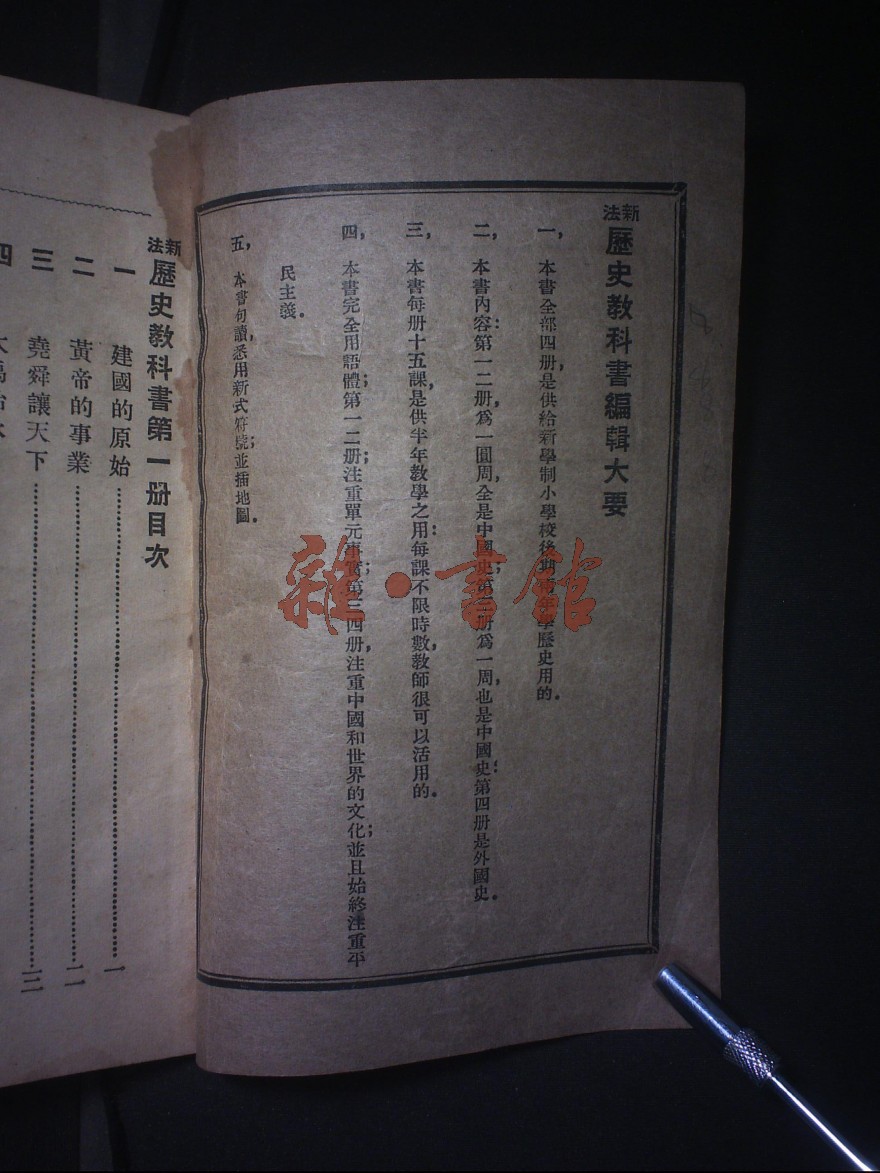 新法歷史教科書編輯大要
一，本書全部四册，是供給新學制小學校後期學歷史用的．
二，本書內容：第一二册，爲一圓周，全是中國史；第三册爲一周，也是中國史：第四册是外國史．
三，本書每册十五課，是供半年教學之用：每課不限時數，教師很可以活用的．
四，本書完全用語體；第一二册注重單元事實；第三四册，注重中國和世界的文化；並且始終注重平
民主義．
五，本書句讀，悉用新式符號；並插地圖．
新法歷史教科書第一册目次
一 建國的原始……一
二 黃帝的事業……二
三 堯舜讓天下……三
四
雜·書館